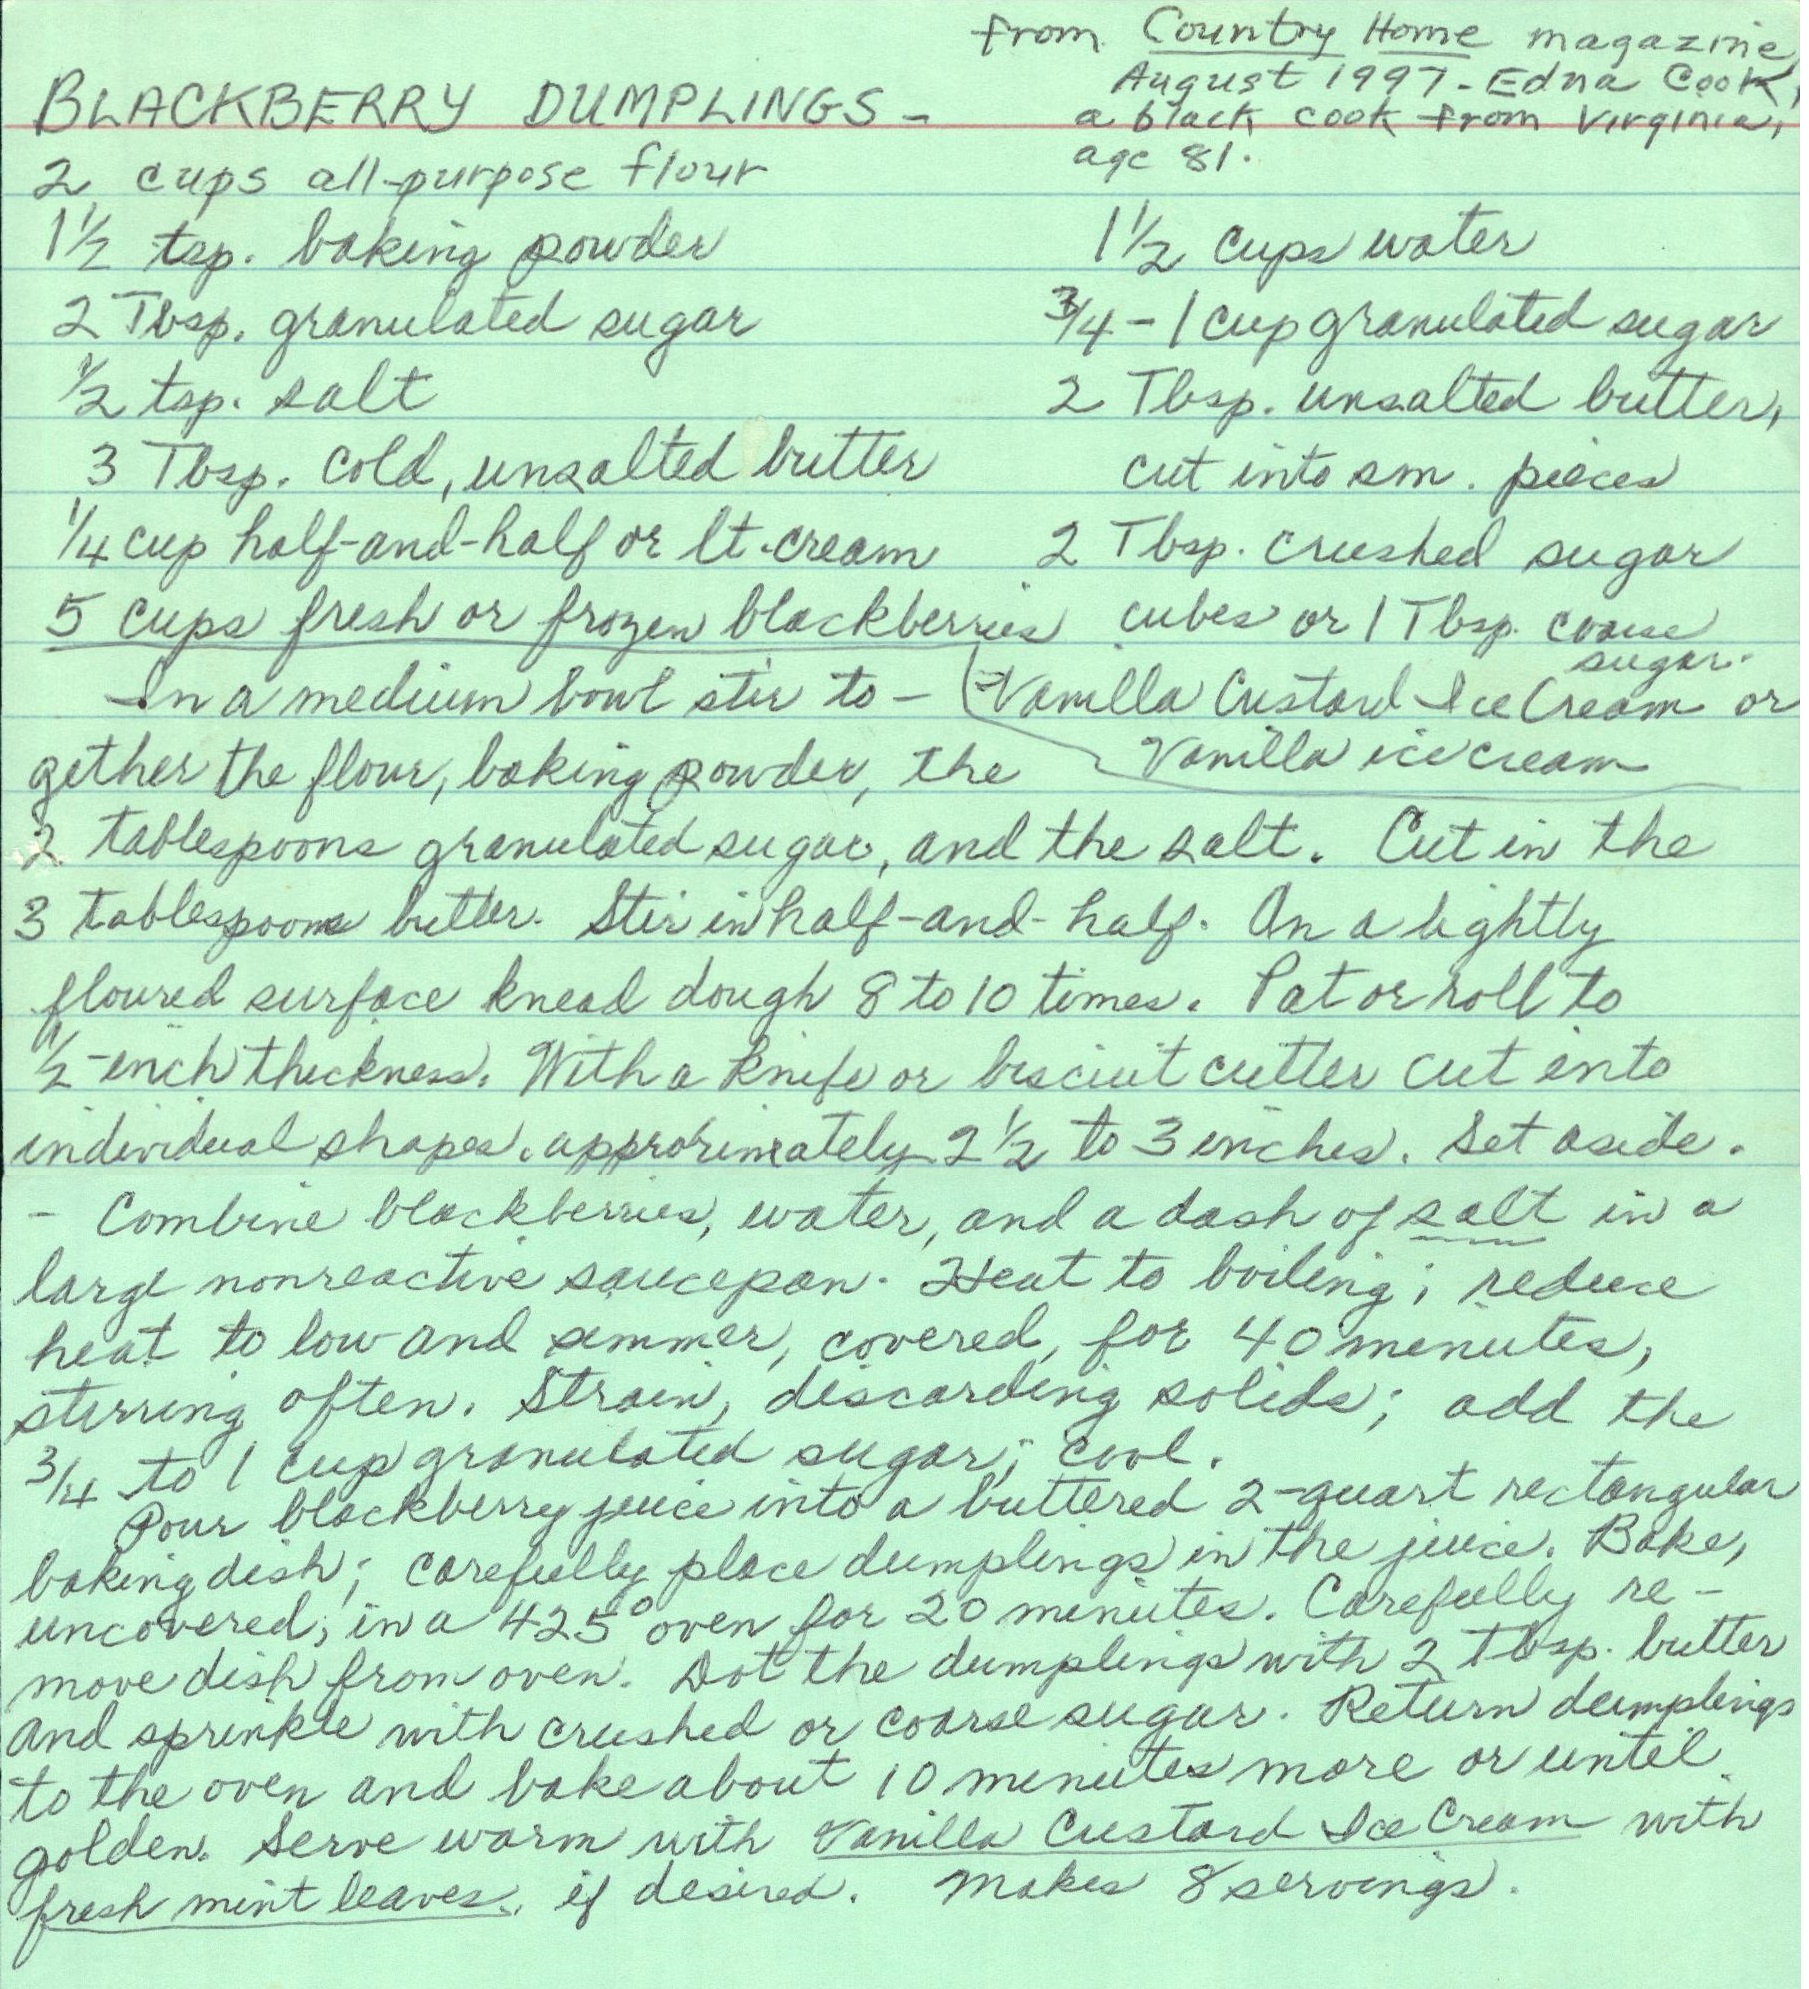 from Country Home magazine,
August 1997 - Edna Cook,
a black cook from Virginia,
age 81.
BLACKBERRY DUMPLINGS -
2 cups all-purpose flour
1 1/2 tsp. baking powder
2 Tbsp. granulated sugar
1/2 tsp. salt
3 Tbsp. cold, unsalted butter
1/4 cup half-and-half or lt. cream
5 cups fresh or frozen blackberries
1 1/2 cups water
3/4 - 1 cup granulated sugar
2 Tbsp. unsalted butter,
cut into sm. pieces
2 Tbsp. crushed sugar
cubes or 1 Tbsp. coarse
sugar.
- Vanilla Custard Ice Cream or
Vanilla ice cream
In a medium bowl stir to-
gether the flour, baking powder, the
2 tablespoons granulated sugar, and the salt. Cut in the
3 tablespoons butter. Stir in half-and-half. On a lightly
floured surface knead dough 8 to 10 times. Pat or roll to
1/2-inch thickness. With a knife or biscuit cutter cut into
individual shapes. approximately 2 1/2 to 3 inches. Set aside.
- Combine blackberries, water, and a dash of salt in a
large nonreactive saucepan. Heat to boiling; reduce
heat to low and simmer, covered, for 40 minutes,
stirring often. Strain, discarding solids; add the
3/4 to 1 cup granulated sugar; cool.
Pour blackberry juice into a buttered 2-quart rectangular
baking dish; carefully place dumplings in the juice. Bake,
uncovered, in a 425° oven for 20 minutes. Carefully re-
move dish from oven. Dot the dumplings with 2 Tbsp. butter
and sprinkle with crushed or coarse sugar. Return dumplings
to the oven and bake about 10 minutes more or until
golden. Serve warm with Vanilla Custard Ice Cream with
fresh mint leaves, if desired. Makes 8 servings.